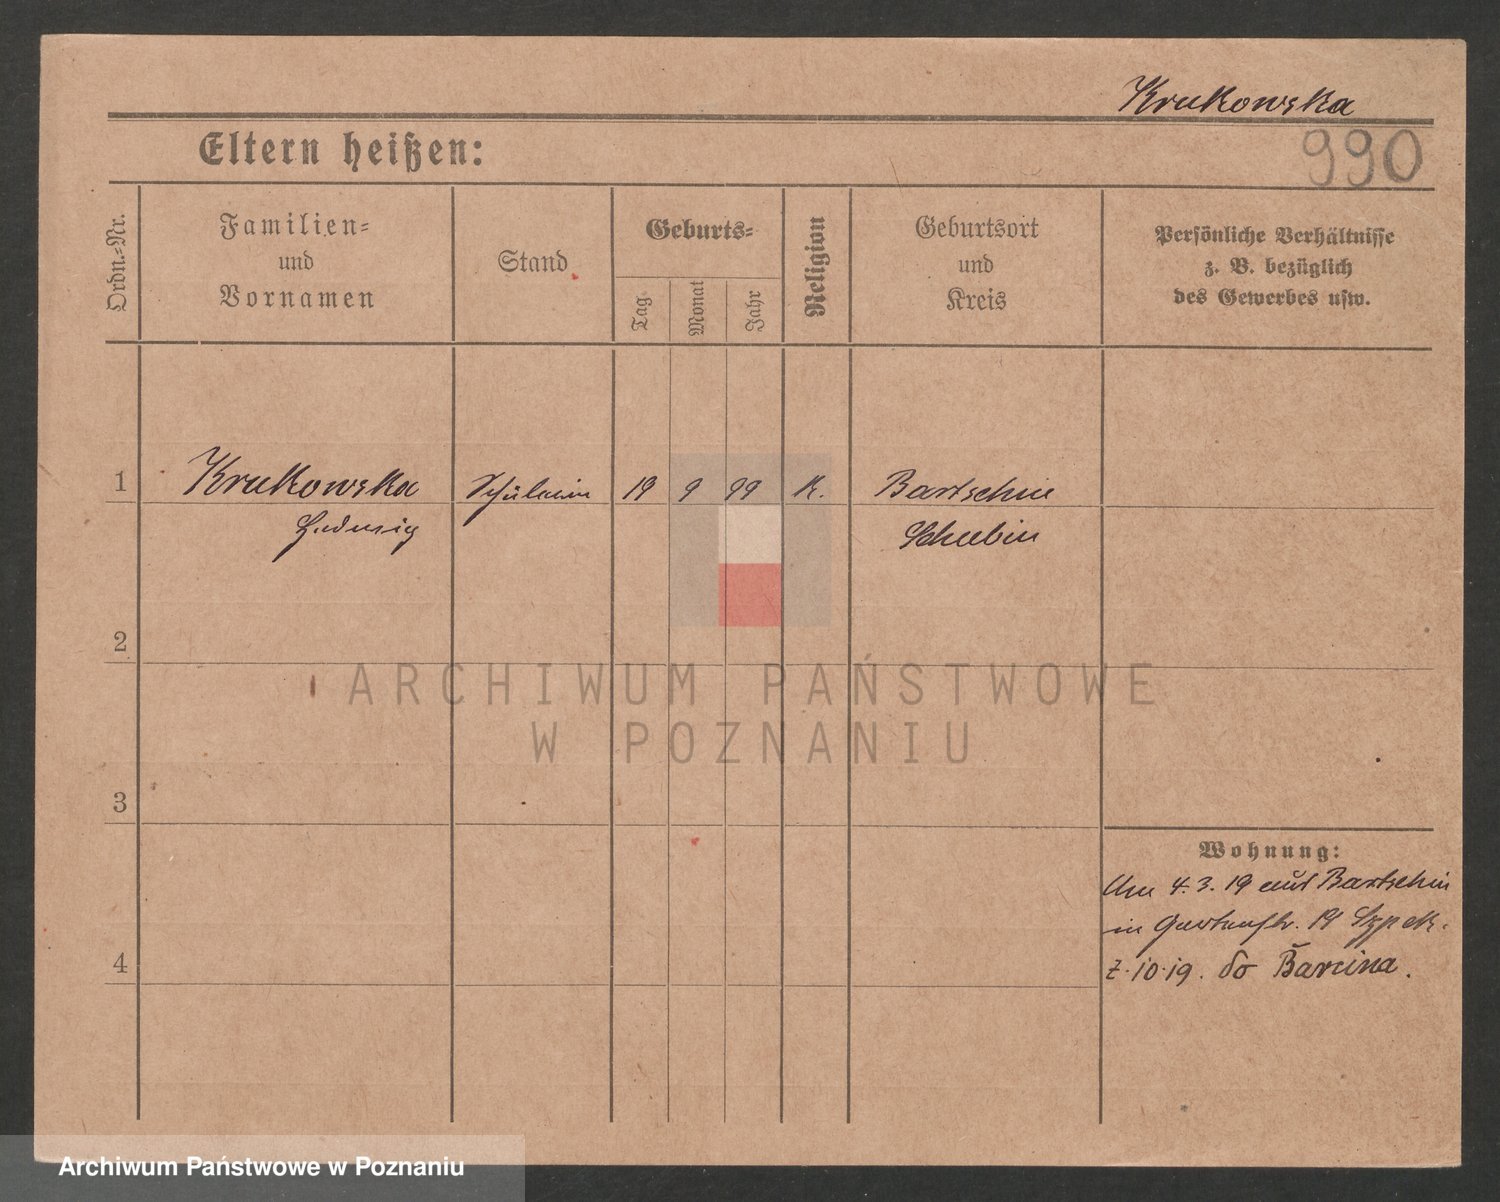 Krukowska
Eltern heißen:
990
Ordn.-Nr.
Familien-
und
Vornamen
Stand
Geburts-
Tag
Monat
Jahr
Religion
Geburtsort
und
Kreis
Persönliche Verhältnisse
z. B. bezüglich
des Gewerbes usw.
1
Krukowska
Hedwig
Schülerin
19
9
99
K.
Bartschin
Schubin
2
ARCHIWUM PAŃSTWOWE
W POZNANIU
3
Wohnung:
Am 4.3.19 aus Bartschin
in Gartenstr. 19
4
10.19. do Barcina.
Archiwum Państwowe w Poznaniu